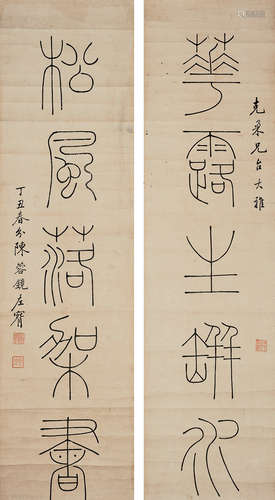 克柔兄台大雅
華露生研水
松風落架書
丁丑春分陳蓉鏡左臂